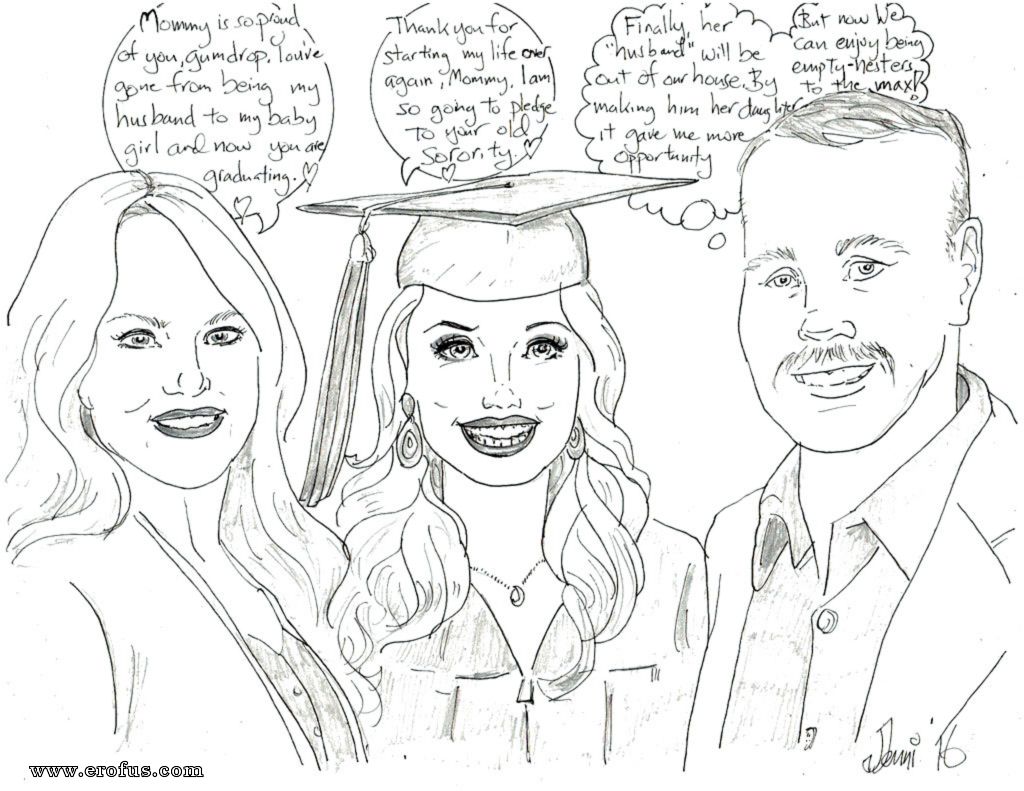 Mommy is so proud
of you, gumdrop. You've
gone from being my
husband to my baby
girl and now you are
graduating.
Thank you for
starting my life over
again, Mommy. I am
so going to pledge
to your old
sorority.
Finally, her
"husband" will be
out of our house. By
making him her daughter
it gave me more
opportunity
But now we
can enjoy being
empty-nesters
to the max!
Jenni '16
www.erofus.com